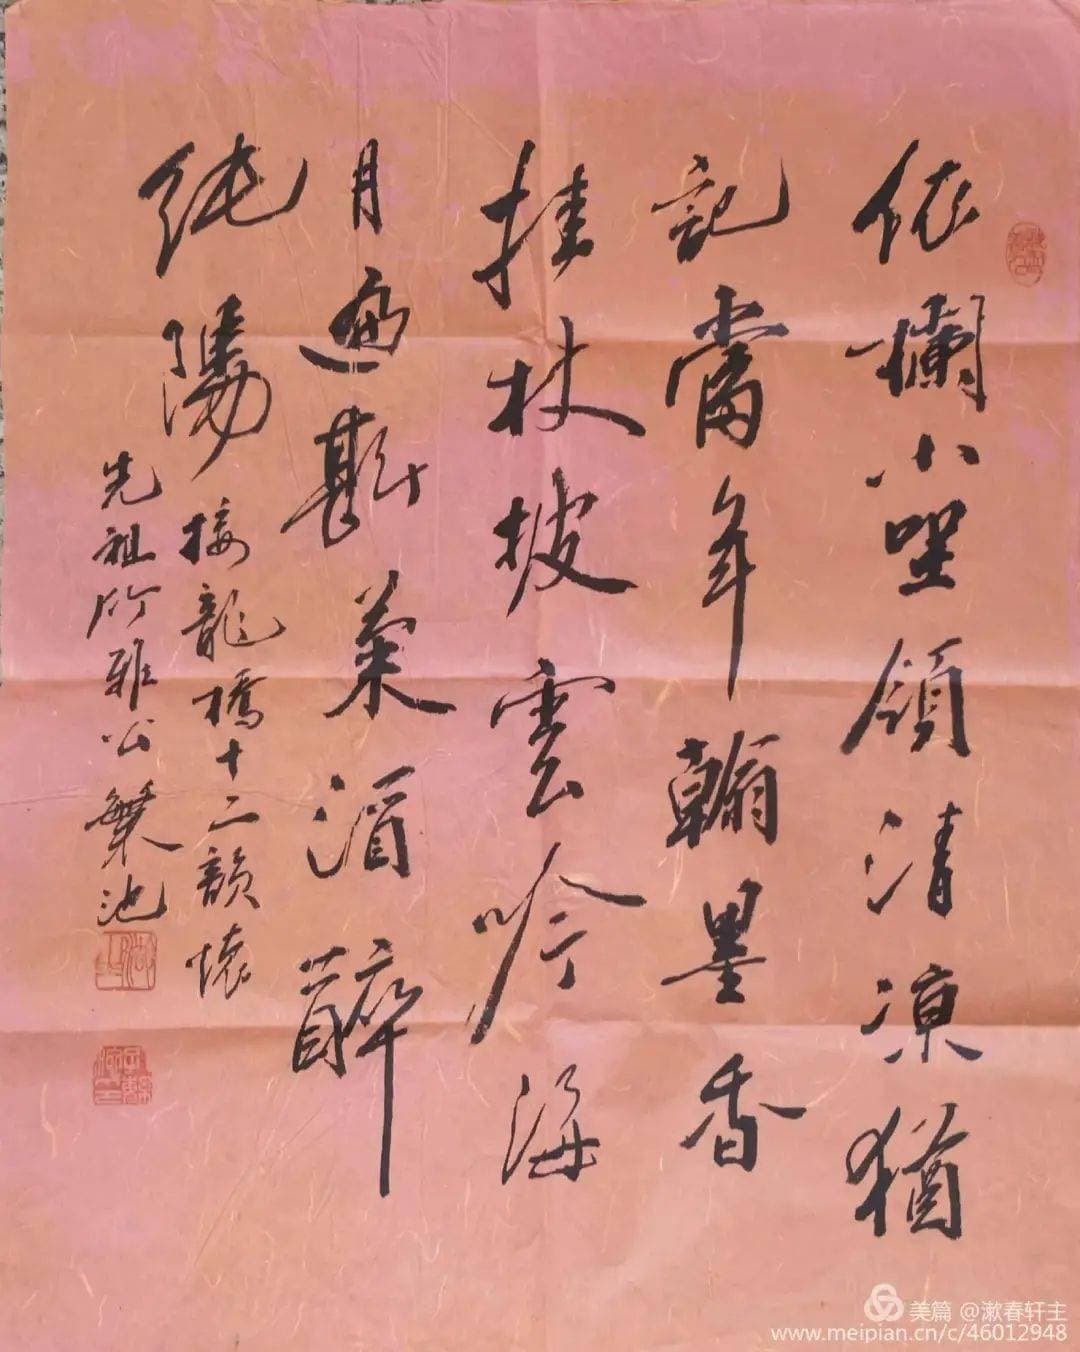 依欄小坐領清涼猶
記當年翰墨香
挂杖披雲吟海
月遍斟菊酒醉
純陽
接龍橋十二韻懷
先祖竹雅公 池
美篇 @漱春轩主
www.meipian.cn/c/46012948